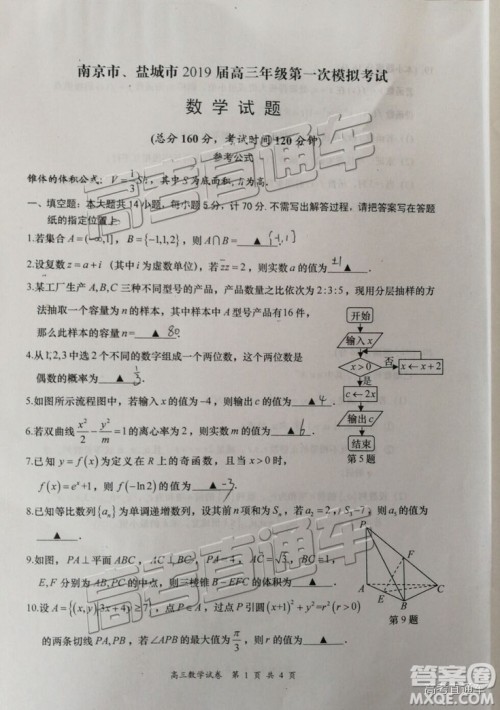 南京市、盐城市 2019 届高三年级第一次模拟考试
数 学 试 题
(总分 160 分，考试时间 120 分钟)
参考公式
锥体的体积公式：V=1/3Sh，其中S为底面积，h为高.
一、填空题：本大题共14小题，每小题5分，计70分. 不需写出解答过程，请把答案写在答题
纸的指定位置上.
1.若集合A=(-∞,1]，B={-1,1,2}，则A∩B= ▲ {-1,1}
2.设复数z=a+i（其中i为虚数单位），若zz̄=2，则实数a的值为 ▲ ±1 .
3.某工厂生产A,B,C三种不同型号的产品，产品数量之比依次为2:3:5，现用分层抽样的方
法抽取一个容量为n的样本，其中样本中A型号产品有16件，
那么此样本的容量n= ▲ 80 .
4.从1,2,3中选2个不同的数字组成一个两位数，这个两位数
偶数的概率为 ▲ 1/3 .
5.如图所示流程图中，若输入x的值为-4，则输出c的值为 ▲ 4 .
6.若双曲线x²/2-y²/m=1的离心率为2，则实数m的值为 ▲ 6 .
7.已知y=f(x)为定义在R上的奇函数，且当x>0时，
f(x)=eˣ+1，则f(-ln2)的值为 ▲ -3 .
8.已知等比数列{aₙ}为单调递增数列，设其前n项和为Sₙ，若a₂=2，S₃=7，则a₅的值为 ▲ .
9.如图，PA⊥平面ABC，AC⊥BC，PA=4，AC=√3，BC=1，
E,F分别为AB,PC的中点，则三棱锥B-EFC的体积为 ▲ .
10.设A={(x,y)|3x+4y≥7}，点P∈A，过点P引圆(x+1)²+y²=r²(r>0)
的两条切线PA,PB，若∠APB的最大值为π/3，则r的值为 ▲ .
开始
输入x
x>0
否
x←x+2
是
c←2x
输出c
结束
第5题
P
F
A
C
E
B
第9题
高三数学试卷 第 1 页 共 4 页
高考直通车
高考直通车
高考直通车
答案圈
MXQE.COM